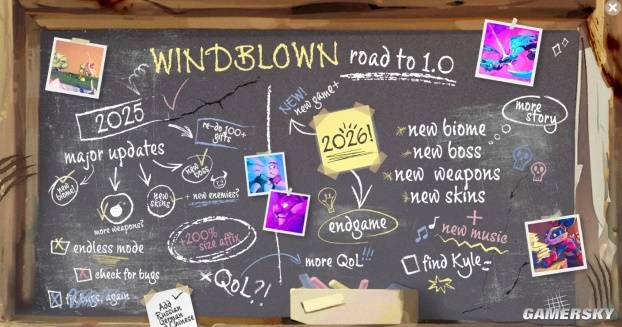 WINDBLOWN road to 1.0
2025
major updates
re-do 100+
gifts
new
biome!
more weapons?
new
skins
new
boss
+ new enemies?
endless mode
check for bugs
fix bugs, again
+200%
size affix
QoL?!
Add
Russian
German
Chinese
NEW!
new game+
2026!
endgame
more QoL!!!
more
story
new biome
new boss
new weapons
new skins
+
new music
find Kyle
GAMERSKY